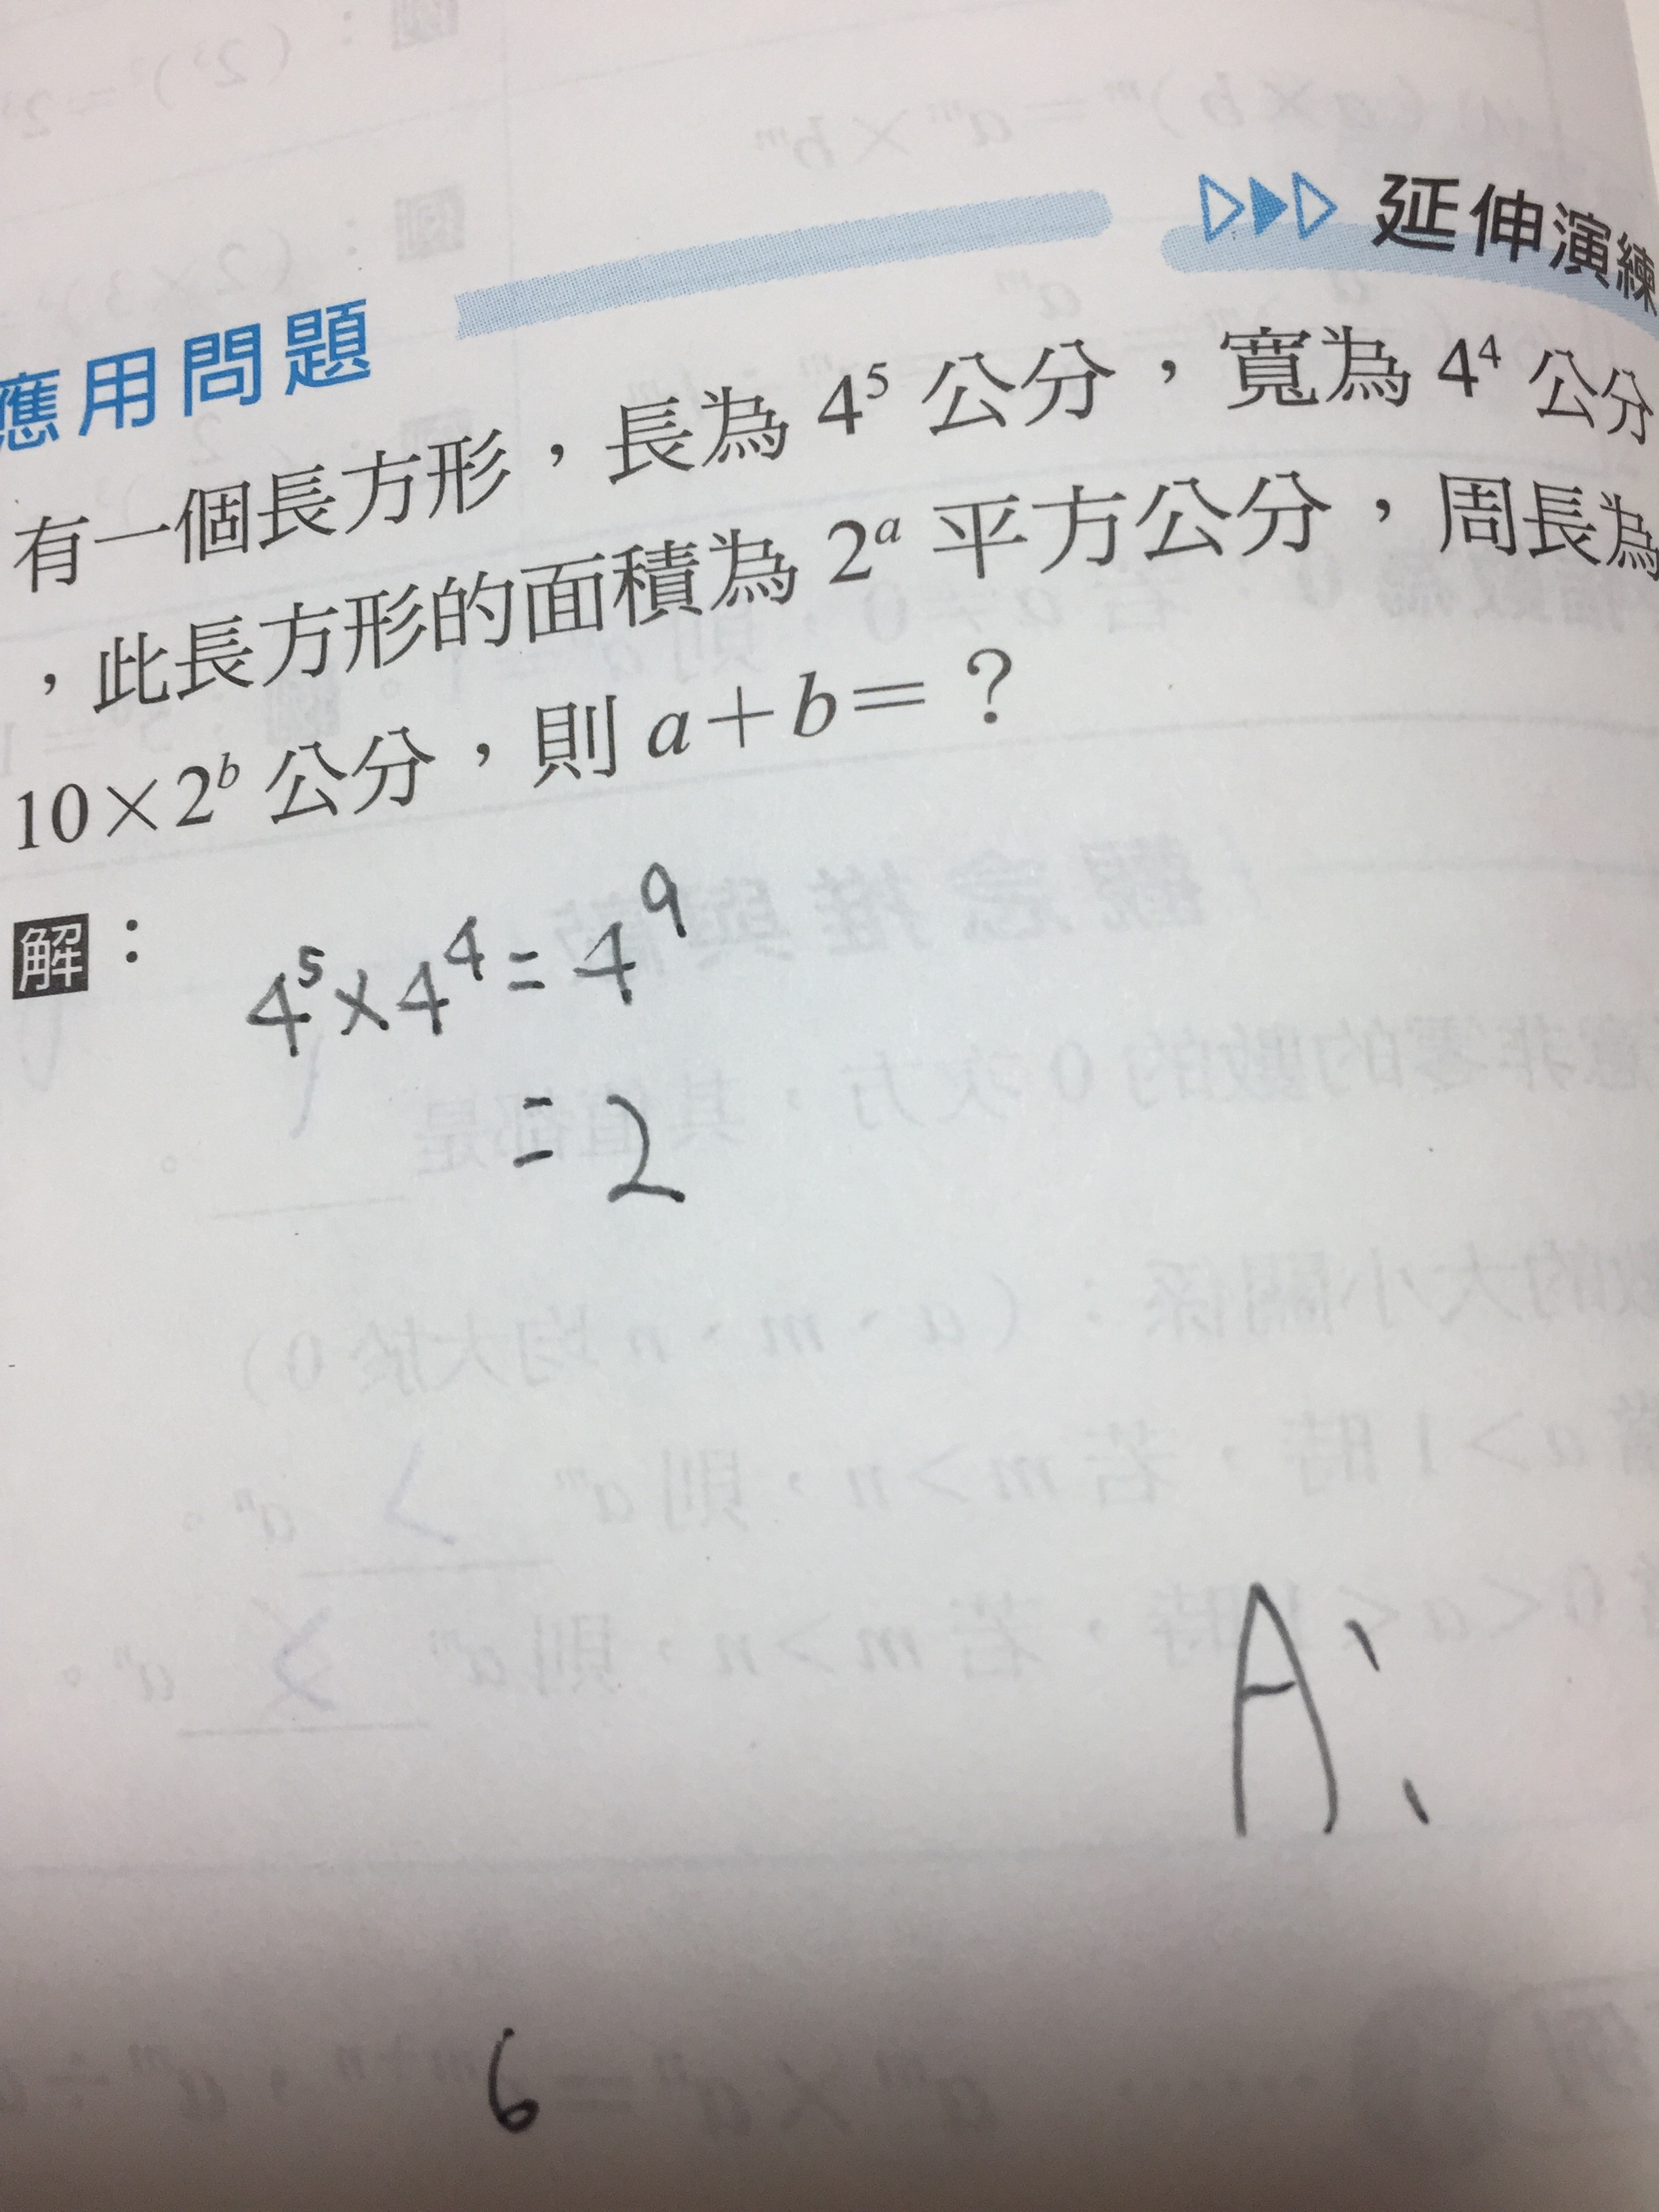 延伸演練
應用問題
有一個長方形，長為 4⁵ 公分，寬為 4⁴ 公分
，此長方形的面積為 2ᵃ 平方公分，周長為
10×2ᵇ 公分，則 a＋b＝？
解：
4⁵×4⁴=4⁹
=2
A:
6